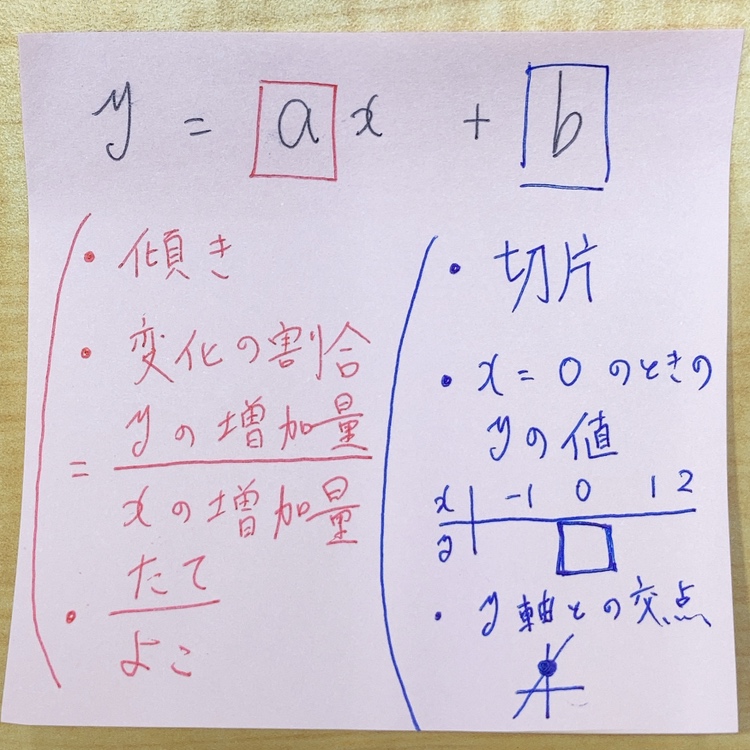 y = a x + b
・傾き
・変化の割合
= yの増加量
xの増加量
・たて
よこ
・切片
・x = 0 のときの
yの値
x -1 0 1 2
y
・y軸との交点